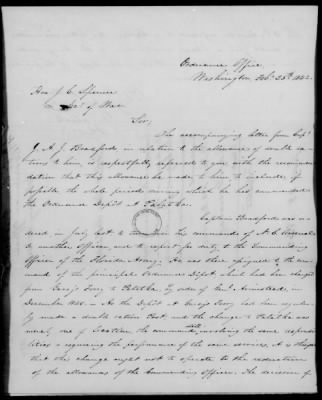 Ordnance Office,
Washington Feby 25th 1842.
Hon. J. C. Spencer
Sec. of War
Sir,
The accompanying letter from Capt
J. A. J. Bradford in relation to the allowance of double ra-
tions to him, is respectfully referred to you with the recommen-
dation that this allowance be made to him to include, if
possible the whole period during which he has commanded
the Ordnance Depôt at Palatka.
Captain Bradford was or-
dered in July last to the command of N. C. Arsenal
to another Officer, and to report for duty to the Commanding
Officer of the Florida Army. He was then assigned to the com-
mand of the principal Ordnance Depôt which had been changed
from Garey's Ferry to Palatka by order of Genl Armistead, in
December 1840. As the Depôt at Garey's Ferry had been regular-
ly made a double ration Post, and the change to Palatka was
merely one of location, the command still involving the same responsi-
bilities & requiring the performance of the same services, it is thought
that the change ought not to operate to the reduction
of the allowances of the Commanding Officer. The decision of